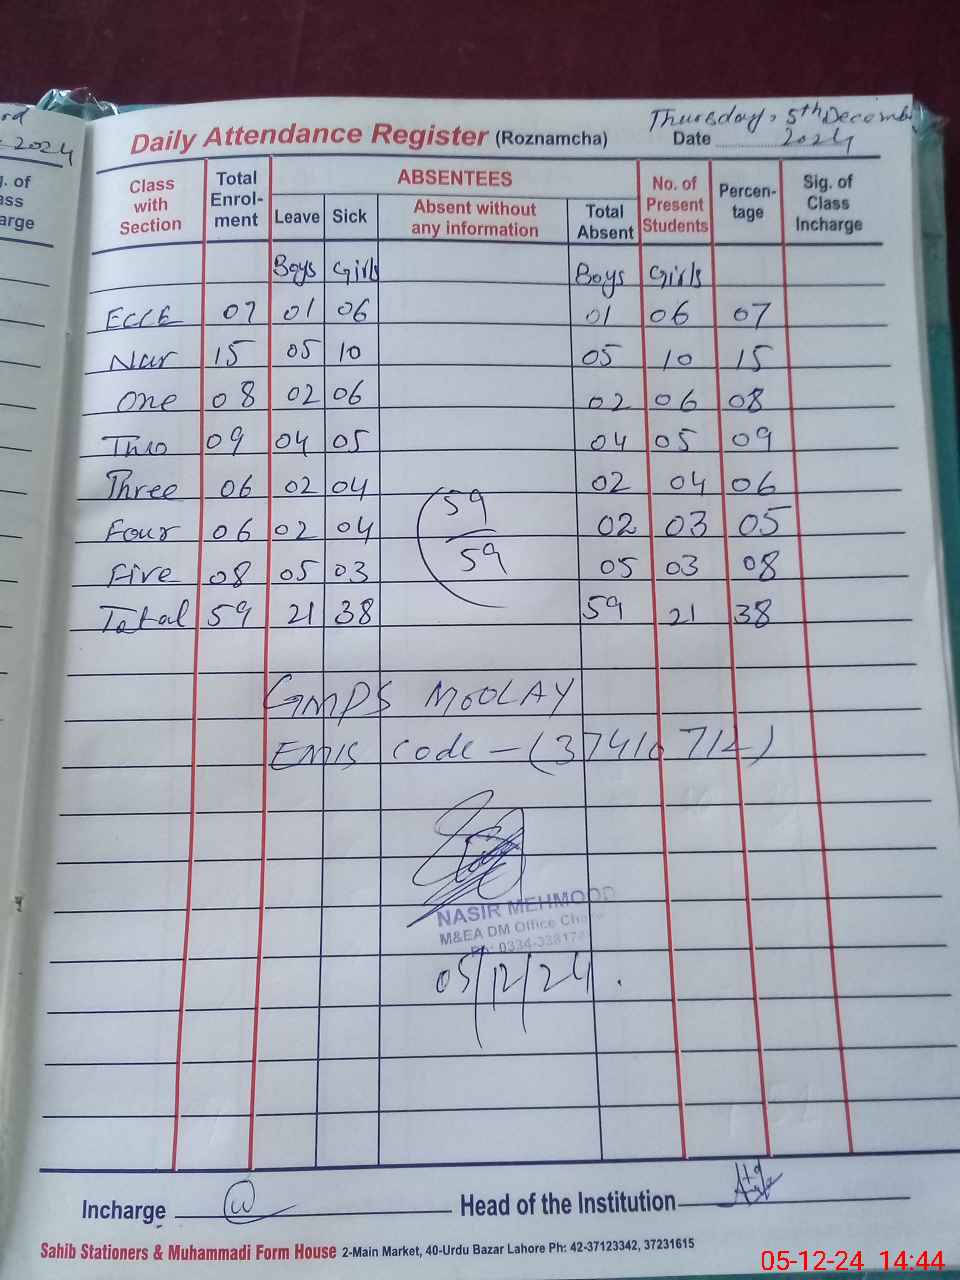 ord
2024
Thursday, 5th Decemb
Daily Attendance Register (Roznamcha) Date 2024
g. of
ass
arge
Class with Section Total Enrol-ment ABSENTEES No. of Present Students Percen-tage Sig. of Class Incharge
Leave Sick Absent without any information Total Absent
Boys Girls Boys Girls
ECCE 07 01 06 01 06 07
Nur 15 05 10 05 10 15
One 08 02 06 02 06 08
Two 09 04 05 04 05 09
Three 06 02 04 02 04 06
Four 06 02 04 02 03 05
Five 08 05 03 05 03 08
59
59
Total 59 21 38 59 21 38
GMPS MOOLAY
EMIS Code - (
NASIR MEHMOOD
M&EA DM Office
05/12/24.
Incharge Head of the Institution
Sahib Stationers & Muhammadi Form House 2-Main Market, 40-Urdu Bazar Lahore Ph: 42-37123342, 37231615
05-12-24 14:44